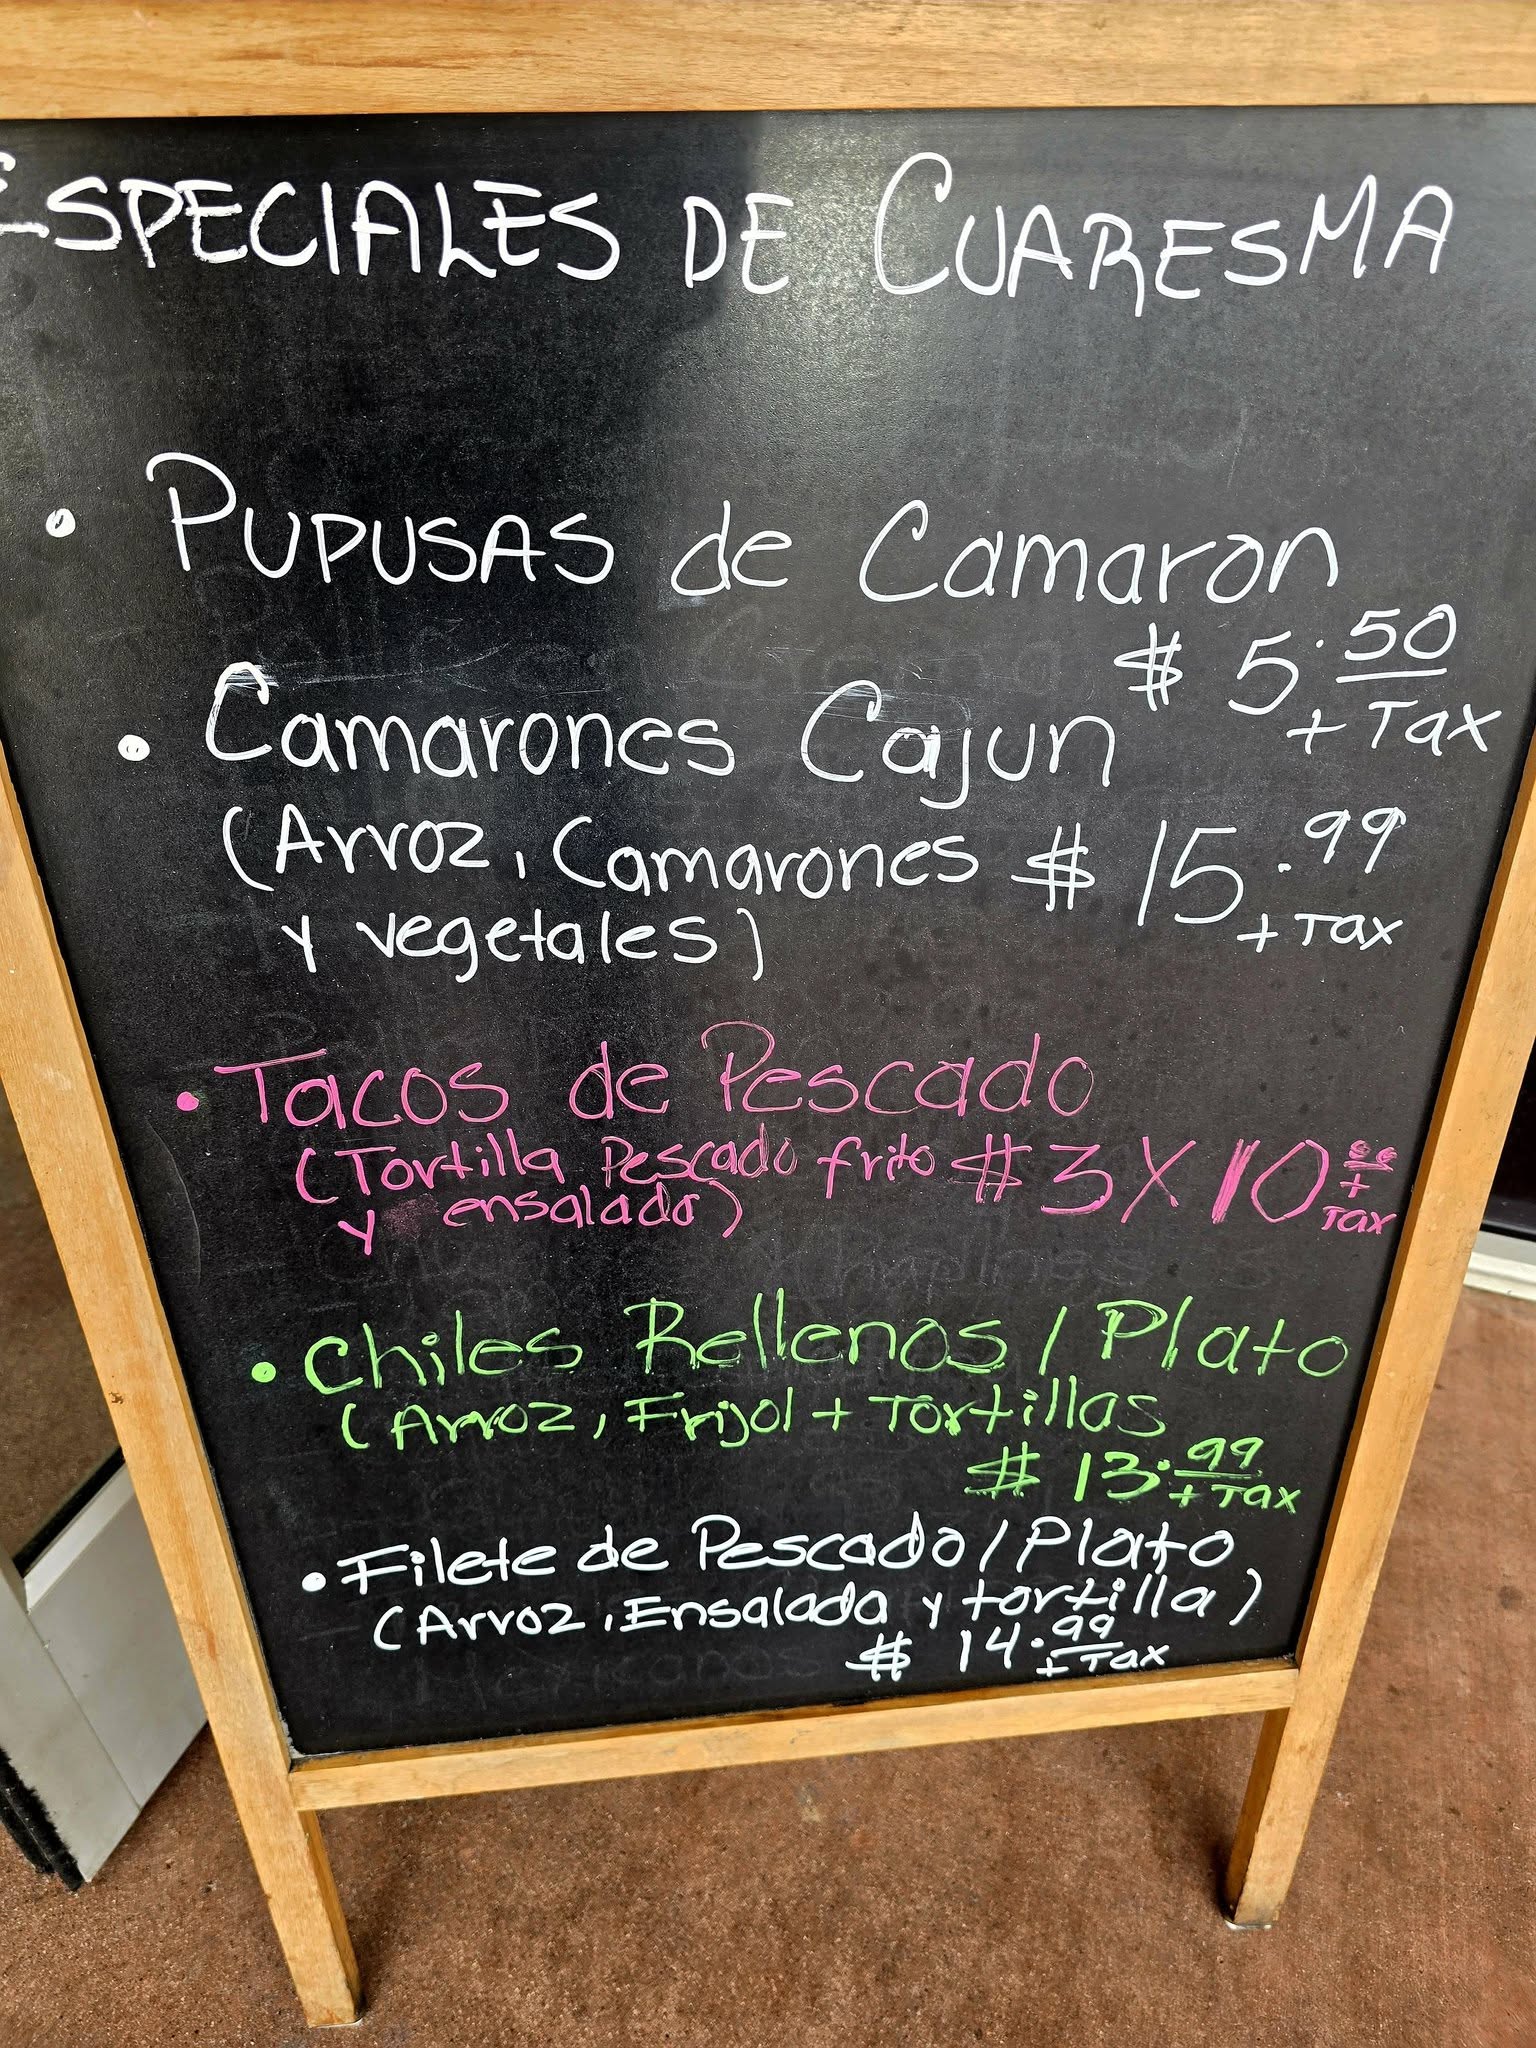 ESPECIALES DE CUARESMA
• PUPUSAS de Camaron
$ 5.50
+ Tax
• Camarones Cajun
(Arroz, Camarones $ 15.99
y vegetales) + Tax
• Tacos de Pescado
(Tortilla Pescado frito $ 3 X 10.00
y ensalada) + Tax
• Chiles Rellenos / Plato
(Arroz, Frijol + Tortillas
$ 13.99
+ Tax
• Filete de Pescado / Plato
(Arroz, Ensalada y tortilla)
$ 14.99
+ Tax